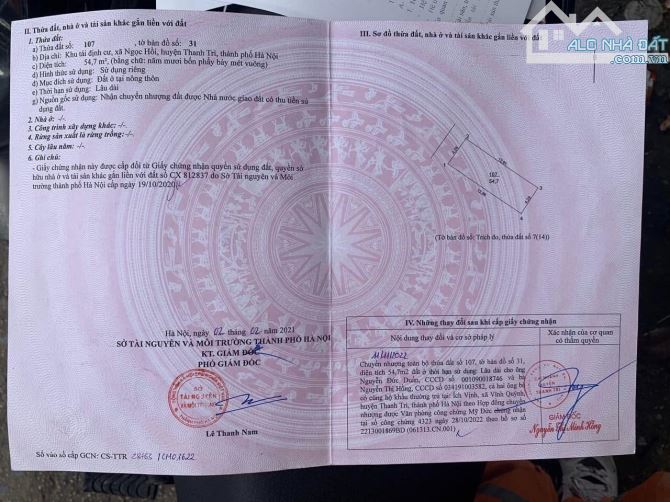 II. Thửa đất, nhà ở và tài sản khác gắn liền với đất
1. Thửa đất:
a) Thửa đất số: 107, tờ bản đồ số: 31
b) Địa chỉ: Khu tái định cư, xã Ngọc Hồi, huyện Thanh Trì, thành phố Hà Nội
c) Diện tích: 54,7 m², (bằng chữ: năm mươi bốn phẩy bảy mét vuông)
d) Hình thức sử dụng: Sử dụng riêng
đ) Mục đích sử dụng: Đất ở tại nông thôn
e) Thời hạn sử dụng: Lâu dài
g) Nguồn gốc sử dụng: Nhận chuyển nhượng đất được Nhà nước giao đất có thu tiền sử
dụng đất.
2. Nhà ở: -/-
3. Công trình xây dựng khác: -/-
4. Rừng sản xuất là rừng trồng: -/-
5. Cây lâu năm: -/-
6. Ghi chú:
- Giấy chứng nhận này được cấp đổi từ Giấy chứng nhận quyền sử dụng đất, quyền sở
hữu nhà ở và tài sản khác gắn liền với đất số CX 812837 do Sở Tài nguyên và Môi
trường thành phố Hà Nội cấp ngày 19/10/2020
Hà Nội, ngày 02 tháng 02 năm 2021
SỞ TÀI NGUYÊN VÀ MÔI TRƯỜNG THÀNH PHỐ HÀ NỘI
KT. GIÁM ĐỐC
PHÓ GIÁM ĐỐC
SỞ
TÀI NGUYÊN
VÀ MÔI TRƯỜNG
Lê Thanh Nam
Số vào sổ cấp GCN: CS-TTR
III. Sơ đồ thửa đất, nhà ở và tài sản khác gắn liền với đất
ALO NHÀ ĐẤT
1
3
4
107
54,7
(Tờ bản đồ số: Trích đo, thửa đất số 7(14))
IV. Những thay đổi sau khi cấp giấy chứng nhận
Nội dung thay đổi và cơ sở pháp lý
Xác nhận của cơ quan
có thẩm quyền
Chuyển nhượng toàn bộ thửa đất số 107, tờ bản đồ số 31,
diện tích 54,7m2 đất ở thời hạn sử dụng Lâu dài cho ông
Nguyễn Đức Duẩn, CCCD số 001090018746 và bà
Nguyễn Thị Hồng, CCCD số 034191003582, cả hai ông bà
có cùng hộ khẩu thường trú tại: Ích Vịnh, xã Vĩnh Quỳnh,
huyện Thanh Trì, thành phố Hà Nội theo Hợp đồng chuyển
nhượng được Văn phòng công chứng Mỹ Đức chứng nhận
số công chứng 4323 ngày 28/10/2022 theo hồ sơ số
2213001869BD (061313.CN.001)
GIÁM ĐỐC
Nguyễn Thị Minh Hồng